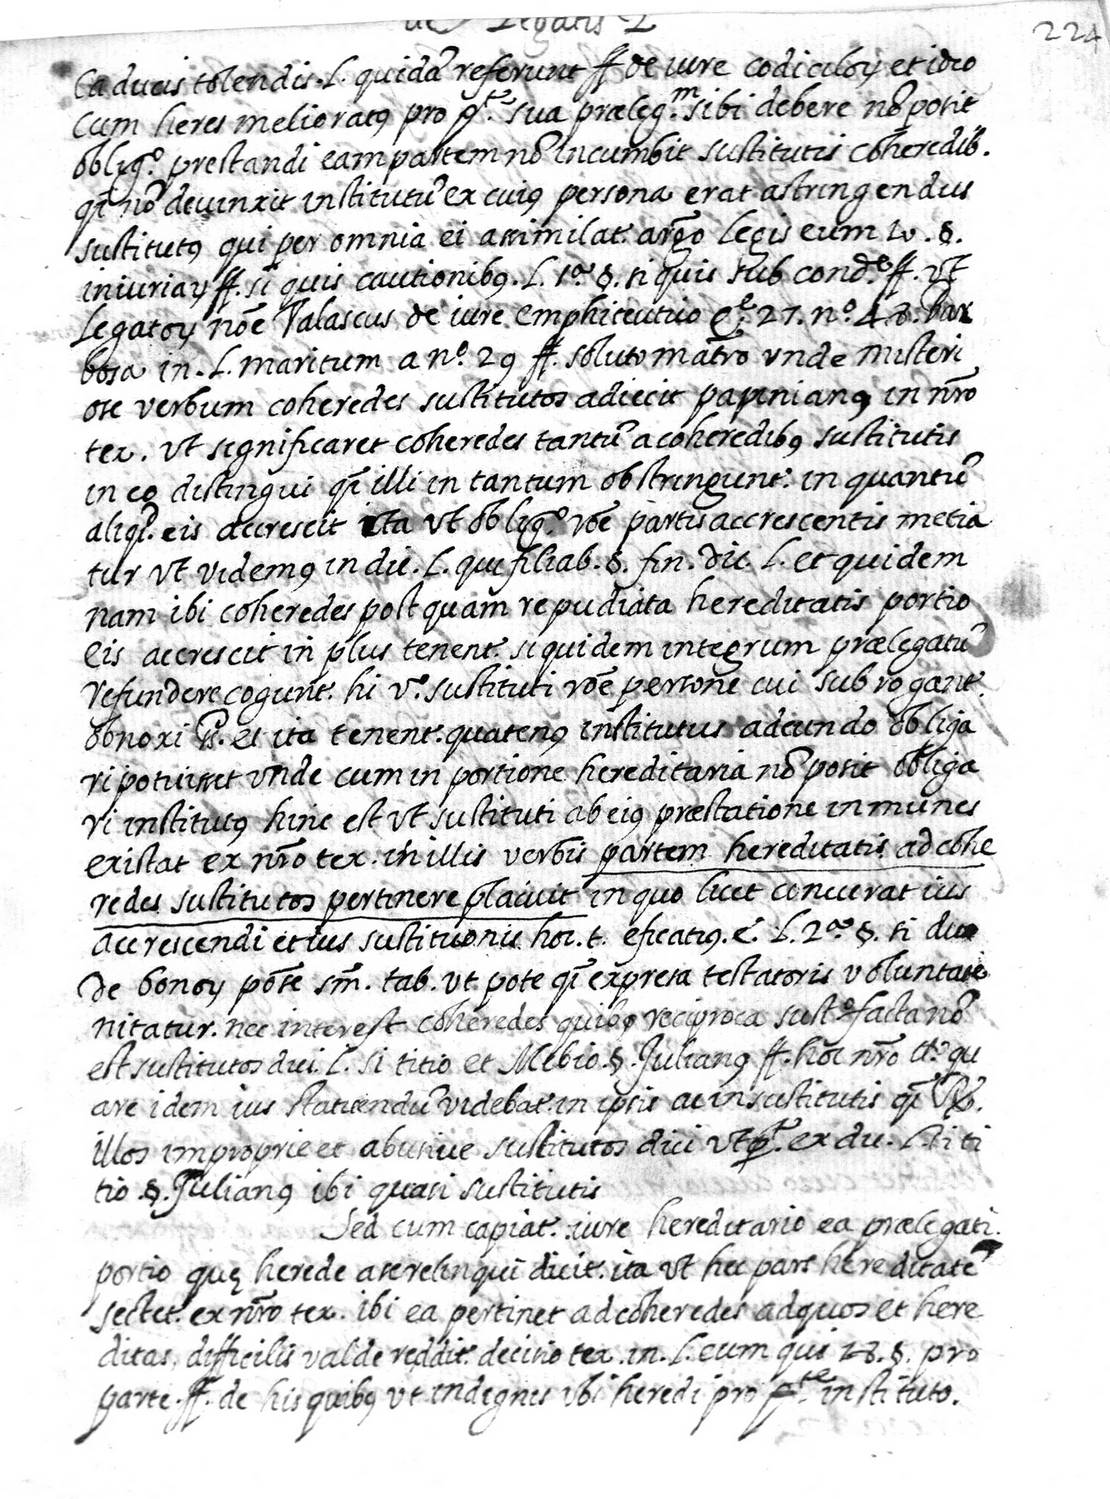 de Legatis 2
224
Caducis tolendis. L. quidã referunt ff de iure codiciloꝝ et ideo
Cum heres melioratꝰ pro pͭᵉ. sua præleg.ᵐ sibi debere nõ posit
oblig.º prestandi eam partem nõ incumbit sustitutis coheredib.
q̃ nõ devinxit institutũ ex cuiꝰ persona erat astringendus
sustitutꝰ qui per omnia ei asimilat. arg̃o Legis eum 10. §.
iniuriaꝝ ff. si quis cautionibꝰ. L. 1ª. §. si quis sub cond.ᵉ ff. Vt
Legatoꝝ nõe Valascus de iure emphiteutico q. 27. nº. 48. bar
bosa in. L. maritum a nº. 29 ff. soluto matro vnde misteri
ose verbum coheredes sustitutos adiecit papinianꝰ in nr̃o
tex. Vt significaret coheredes tantũ a coheredibꝰ sustitutis
in eo distingui q̃ illi in tantum obstringunt. in quantũ
aliq. eis accrescit ita vt oblig.º rõe partis accrescentis metia
tur vt videmꝰ in dic. L. qui filiab. §. fin. dic. L. et quidem
nam ibi coheredes post quam repudiata hereditatis portio
eis accrescit in plus tenent. siquidem integrum prælegatũ
refundere cogunt. hi v.º sustituti rõe persone cui subrogant.
obnoxi et ita tenent. quatenꝰ institutus adeundo obliga
ri potuisset vnde cum in portione hereditaria nõ posit obliga
ri institutꝰ hinc est vt sustituti ab eiꝰ præstatione inmunes
existat ex nr̃o tex. in illis verbis partem hereditatis ad cohe
redes sustitutos pertinere placuit in quo licet concuerat ius
accrescendi et ius sustitucionis hoc. t. eficatiꝰ. e. L. 2ª. §. si duo
de bonoꝝ põse sm̃. tab. vt pote q̃ expresa testatoris voluntate
nitatur. nec interest coheredes quibꝰ reciproca sust.º facta nõ
est sustitutos dici. L. si titio et Mebio. §. Julianꝰ ff. hoc nr̃o tt.º qu
are idem ius statuendũ videbat. in ipsis ac in sustitutis q̃
illos improprie et abusiue sustitutos dici vt ex dic. L. si ti
tio §. Julianꝰ ibi quasi sustitutis
Sed cum capiat. iure hereditario ea prælegati.
portio quę herede a se relinqui dicit. ita vt hec pars hereditatẽ
sectet. ex nr̃o tex. ibi ea pertinet ad coheredes ad quos et here
ditas, difficilis valde reddit. decisio tex. in. L. cum qui 18. §. pro
parte. ff. de his quibꝰ vt indegnis vbi heredi pro pͭᵉ. instituto.